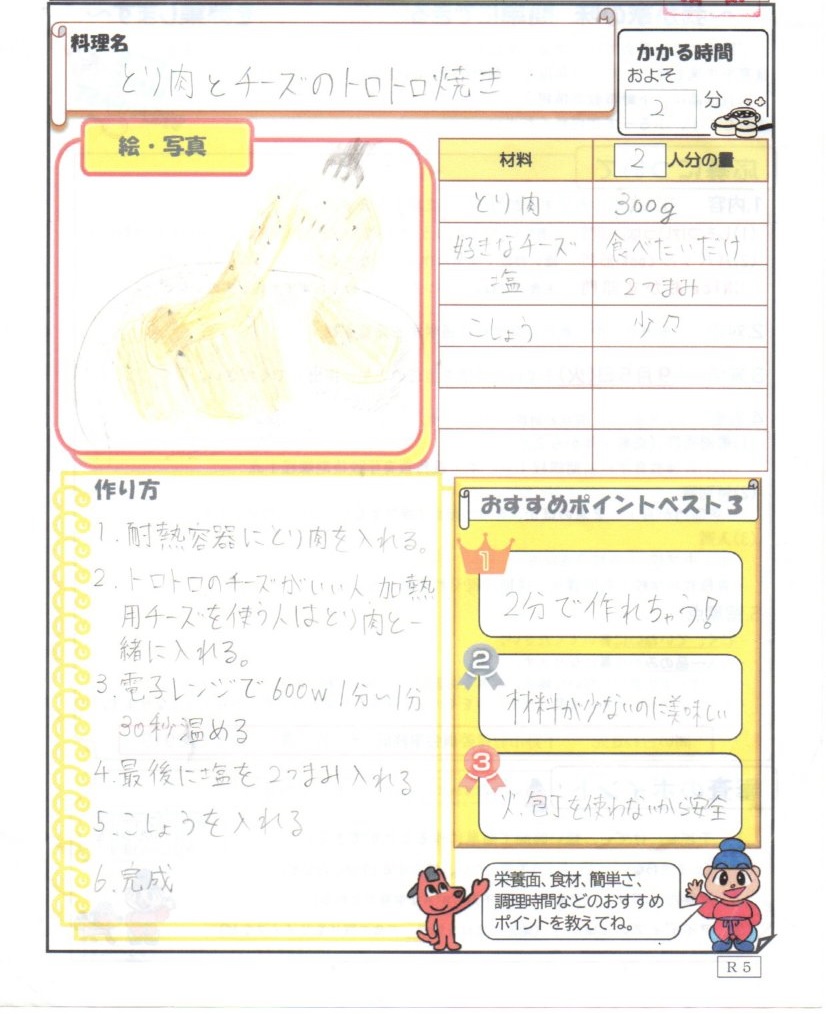 料理名
とり肉とチーズのトロトロ焼き
かかる時間
およそ
2 分
絵・写真
材料 2 人分の量
とり肉 300g
好きなチーズ 食べたいだけ
塩 2つまみ
こしょう 少々
作り方
1.耐熱容器にとり肉を入れる。
2.トロトロのチーズがいい人、加熱
用チーズを使う人はとり肉と一
緒に入れる。
3.電子レンジで600W 1分~1分
30秒温める
4.最後に塩を2つまみ入れる
5.こしょうを入れる
6.完成
おすすめポイントベスト3
1
2分で作れちゃう!
2
材料が少ないのに美味しい
3
火、包丁を使わないから安全
栄養面、食材、簡単さ、
調理時間などのおすすめ
ポイントを教えてね。
R5